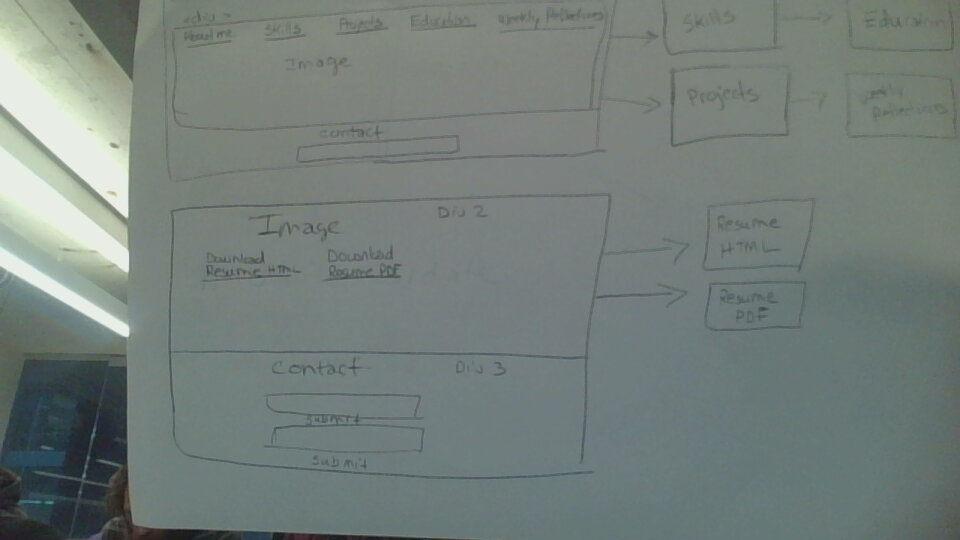 <div>
About me Skills Projects Education Weekly Reflections
Image
Contact
Skills
Education
Projects
Reflections
Image
Div 2
Download
Resume HTML
Download
Resume PDF
Resume
HTML
Resume
PDF
Contact
Div 3
submit
submit